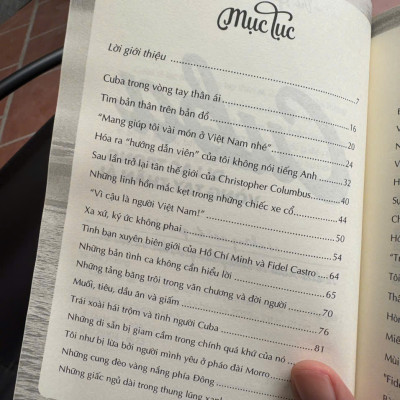 Mục lục
Lời giới thiệu ........ 7
Cuba trong vòng tay thân ái ........ 16
Tìm bản thân trên bản đồ ........ 20
“Mang giúp tôi vài món ở Việt Nam nhé” ........ 24
Hóa ra “hướng dẫn viên” của tôi không nói tiếng Anh ........ 32
Sau lần trở lại tân thế giới của Christopher Columbus ........ 40
Những linh hồn mắc kẹt trong những chiếc xe cổ ........ 44
“Vì cậu là người Việt Nam!” ........ 50
Xa xứ, ký ức không phai ........ 54
Tình bạn xuyên biên giới của Hồ Chí Minh và Fidel Castro ........ 64
Những bản tình ca không cần hiểu lời ........ 65
Những tảng băng trôi trong văn chương và đời người ........ 70
Muối, tiêu, dầu ăn và giấm ........ 76
Trái xoài hái trộm và tình người Cuba ........ 81
Những di sản bị giam cầm trong chính quá khứ của nó
Tôi như bị lừa bởi người mình yêu ở pháo đài Morro
Những cung đèo vàng nắng phía Đông
Những giấc ngủ dài trong thung lũng